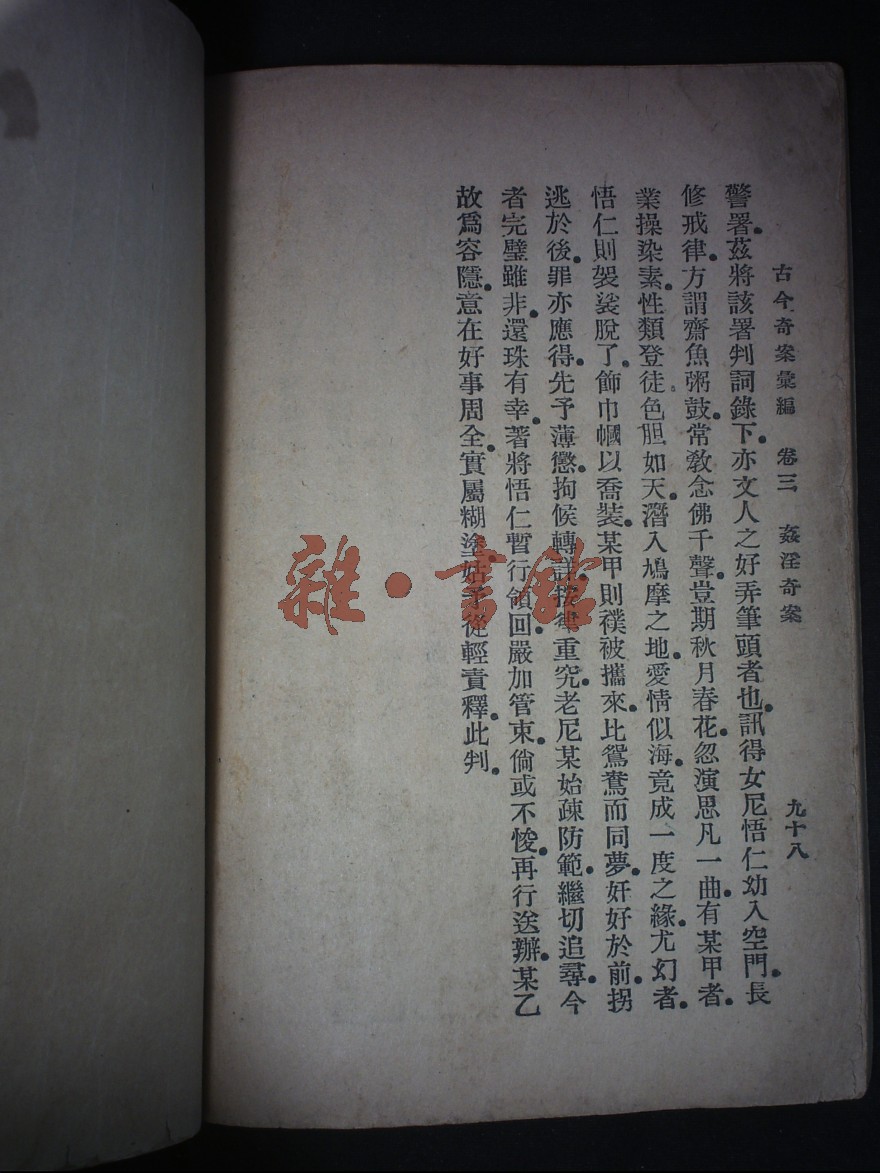 古今奇案彙編　卷三　姦淫奇案　九十八
警署。茲將該署判詞錄下。亦文人之好弄筆頭者也。訊得女尼悟仁幼入空門。長
修戒律。方謂齋魚粥鼓。常敎念佛千聲。豈期秋月春花。忽演思凡一曲。有某甲者。
業操染素。性類登徒。色胆如天。潛入鳩摩之地。愛情似海。竟成一度之緣。尤幻者。
悟仁則袈裟脫了。飾巾幗以喬裝。某甲則襆被攜來。比鴛鴦而同夢。奸好於前。拐
逃於後。罪亦應得。先予薄懲。拘候轉詳。按律重究。老尼某始疎防範。繼切追尋。今
者完璧雖非。還珠有幸。著將悟仁暫行領回。嚴加管束。倘或不悛。再行送辦。某乙
故爲容隱。意在好事周全。實屬糊塗。姑予從輕責釋。此判。
雜·書館